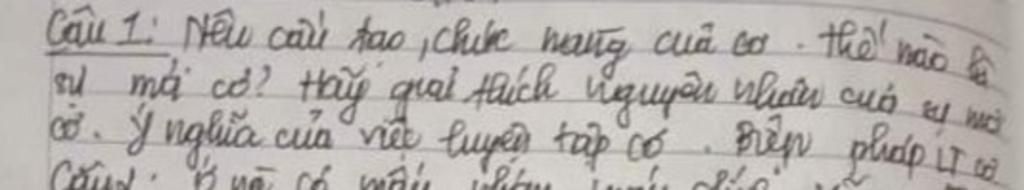 Câu 1: Nêu cấu tạo, chức năng của cơ. thế nào là
sự mỏi cơ? Hãy giải thích nguyên nhân của sự mỏi
cơ. Ý nghĩa của việc luyện tập cơ. Biện pháp LT cơ
Câu 2: Ở nó có mấy nhóm máu